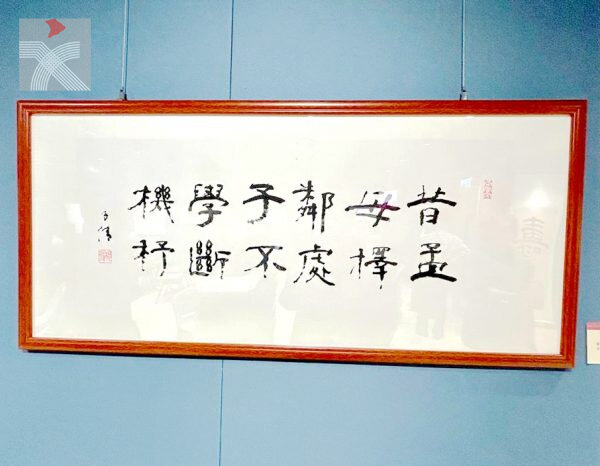 昔孟
母擇
鄰處
子不
學斷
機杼